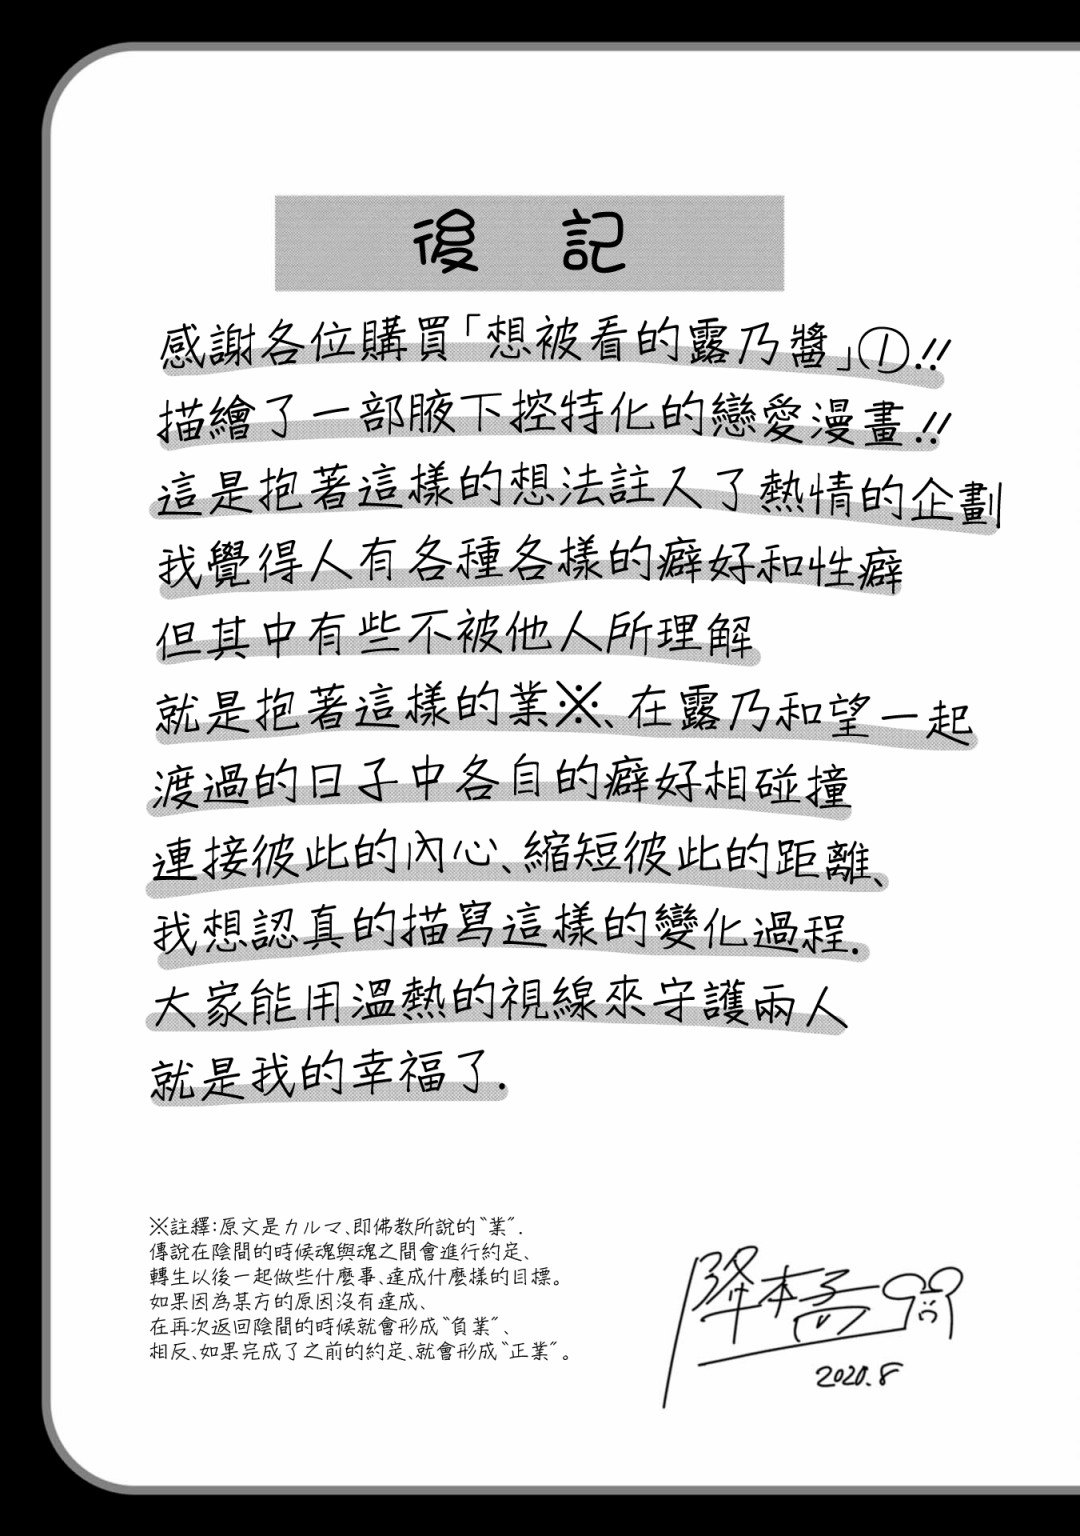 後 記
感謝各位購買「想被看的露乃醬」①!!
描繪了一部腋下控特化的戀愛漫畫!!
這是抱著這樣的想法註入了熱情的企劃
我覺得人有各種各樣的癖好和性癖
但其中有些不被他人所理解
就是抱著這樣的業※、在露乃和望一起
渡過的日子中各自的癖好相碰撞
連接彼此的內心、縮短彼此的距離、
我想認真的描寫這樣的變化過程.
大家能用溫熱的視線來守護兩人
就是我的幸福了.
※註釋:原文是カルマ、即佛教所說的“業”.
傳說在陰間的時候魂與魂之間會進行約定、
轉生以後一起做些什麼事、達成什麼樣的目標。
如果因為某方的原因沒有達成、
在再次返回陰間的時候就會形成“負業”、
相反、如果完成了之前的約定、就會形成“正業”。
降本孟
2020.8